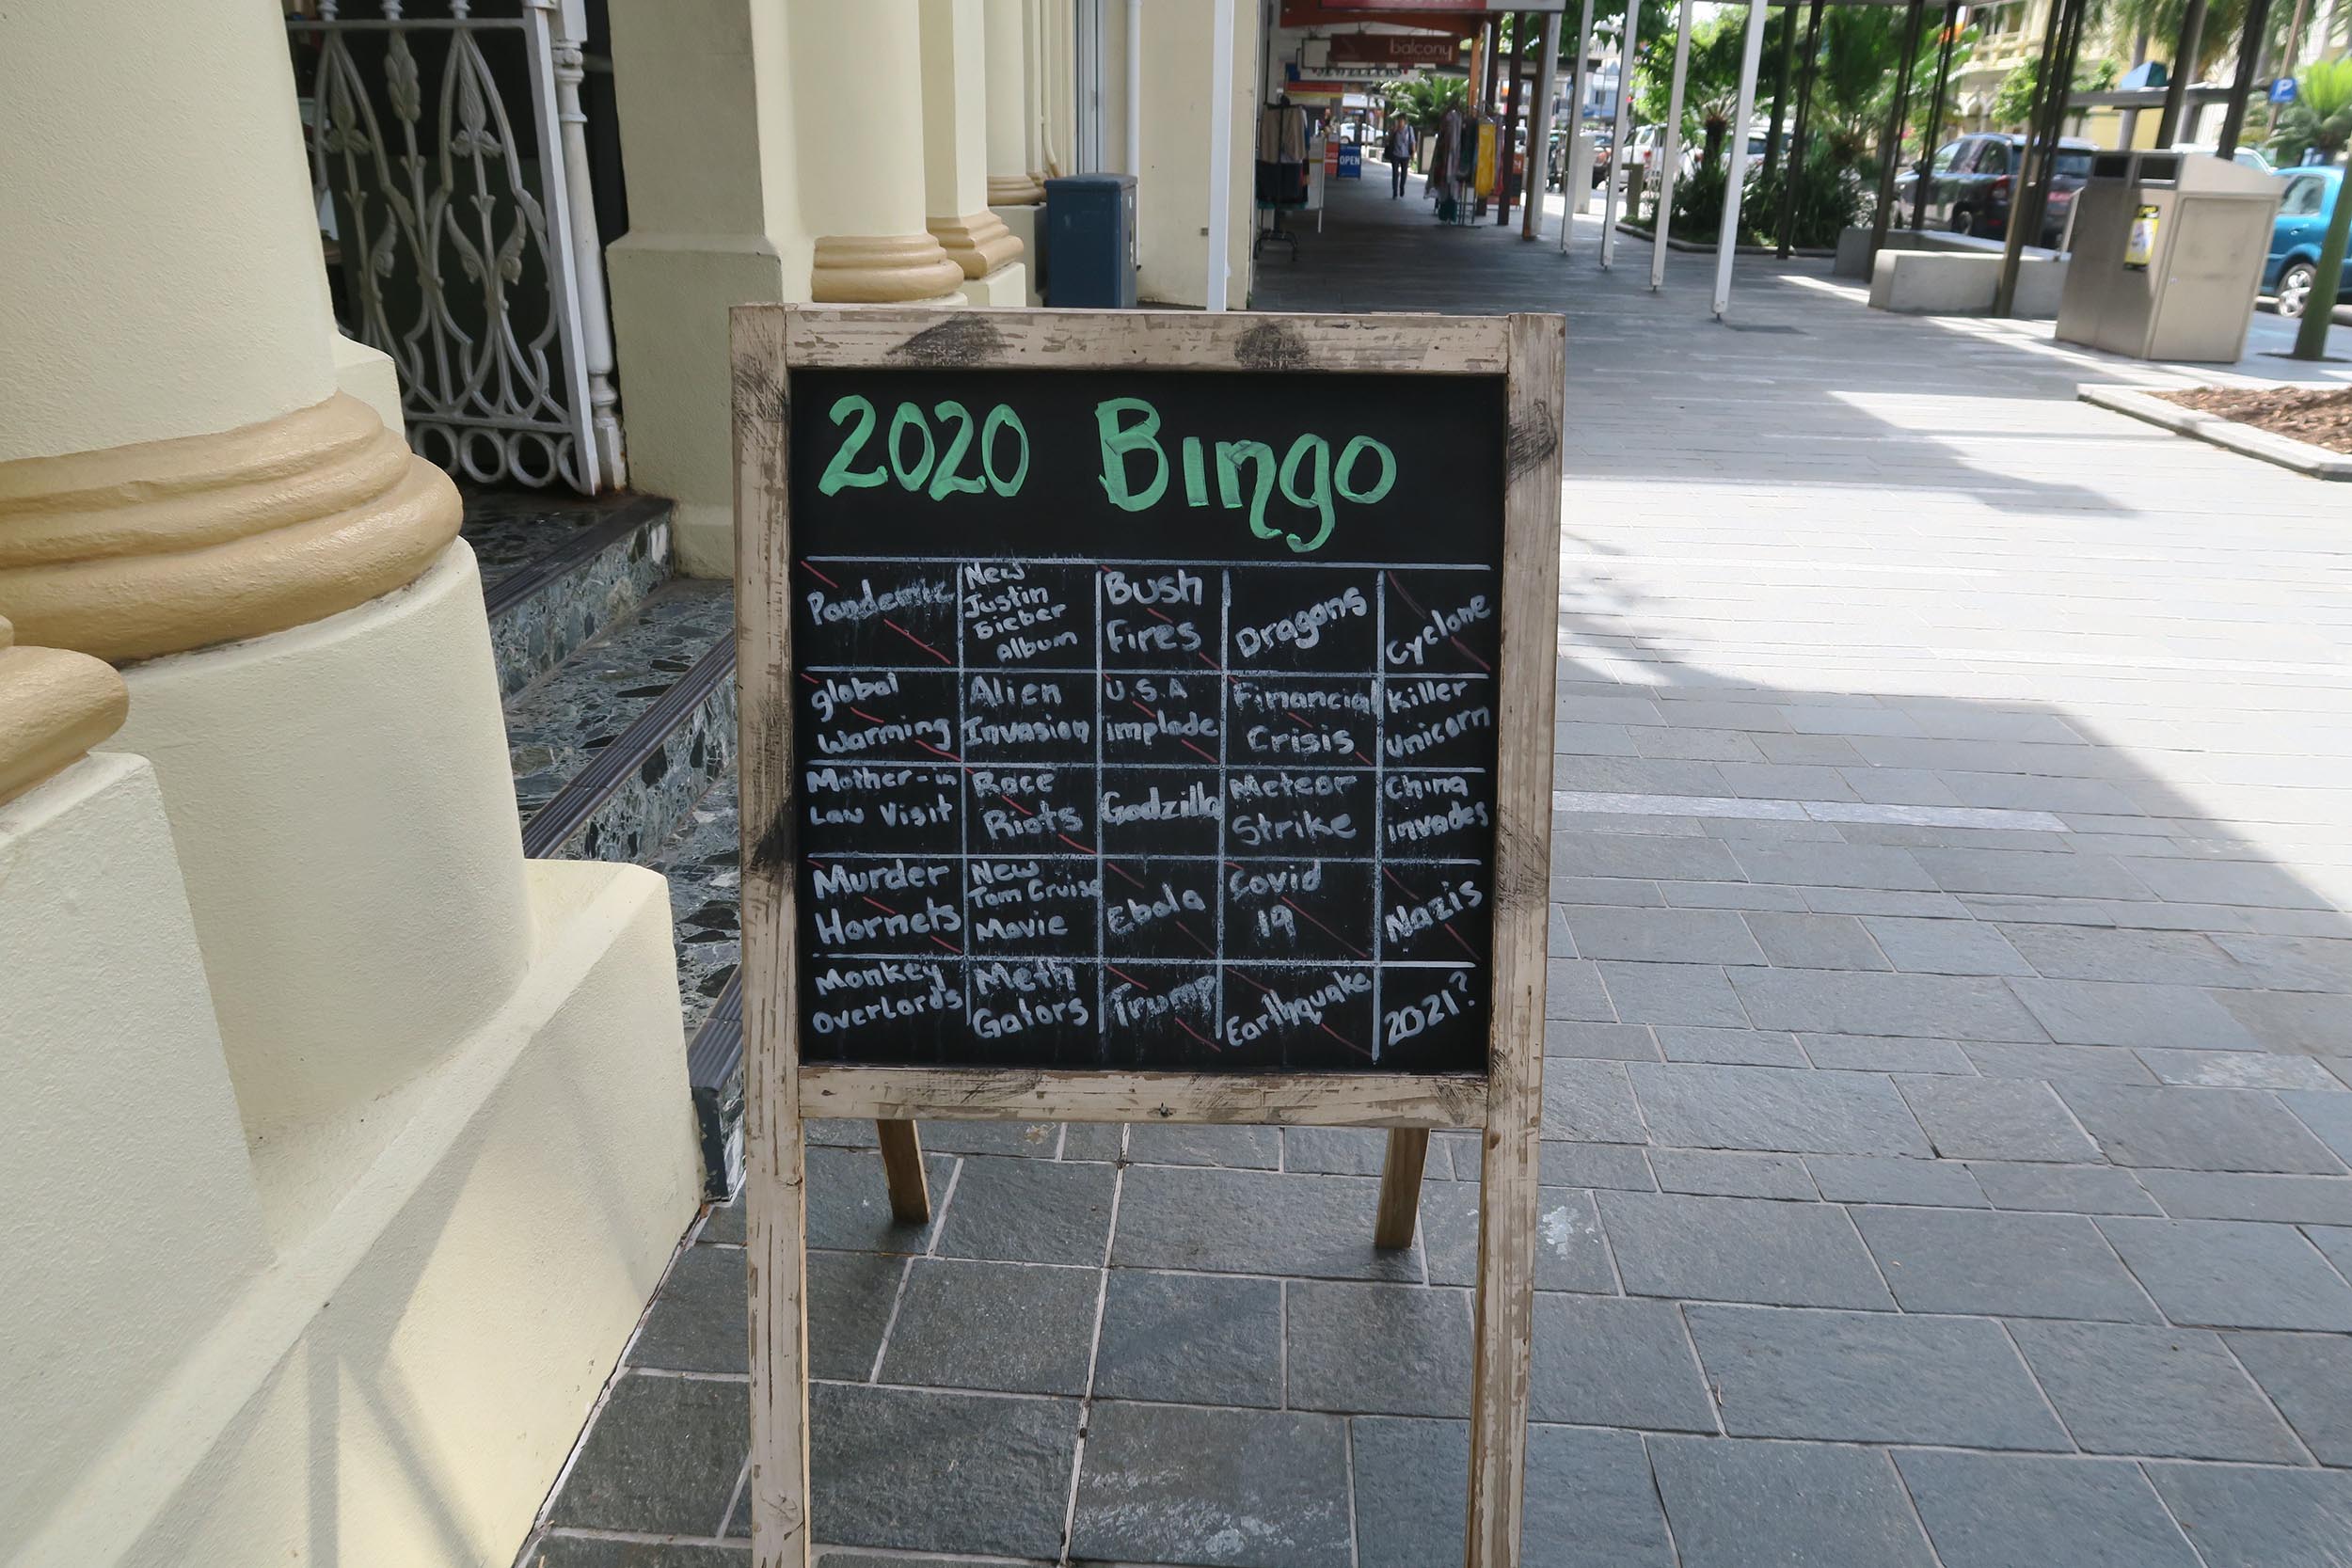 balcony
OPEN
P
2020 Bingo
Pandemic
New
Justin
Bieber
Album
Bush
Fires
Dragons
Cyclone
global
Warming
Alien
Invasion
U.S.A
implode
Financial
Crisis
Killer
Unicorn
Mother-in
Law Visit
Race
Riots
Godzilla
Meteor
Strike
China
invades
Murder
Hornets
New
Tom Cruise
Movie
Ebola
Covid
19
Nazis
Monkey
Overlords
Meth
Gators
Trump
Earthquake
2021?